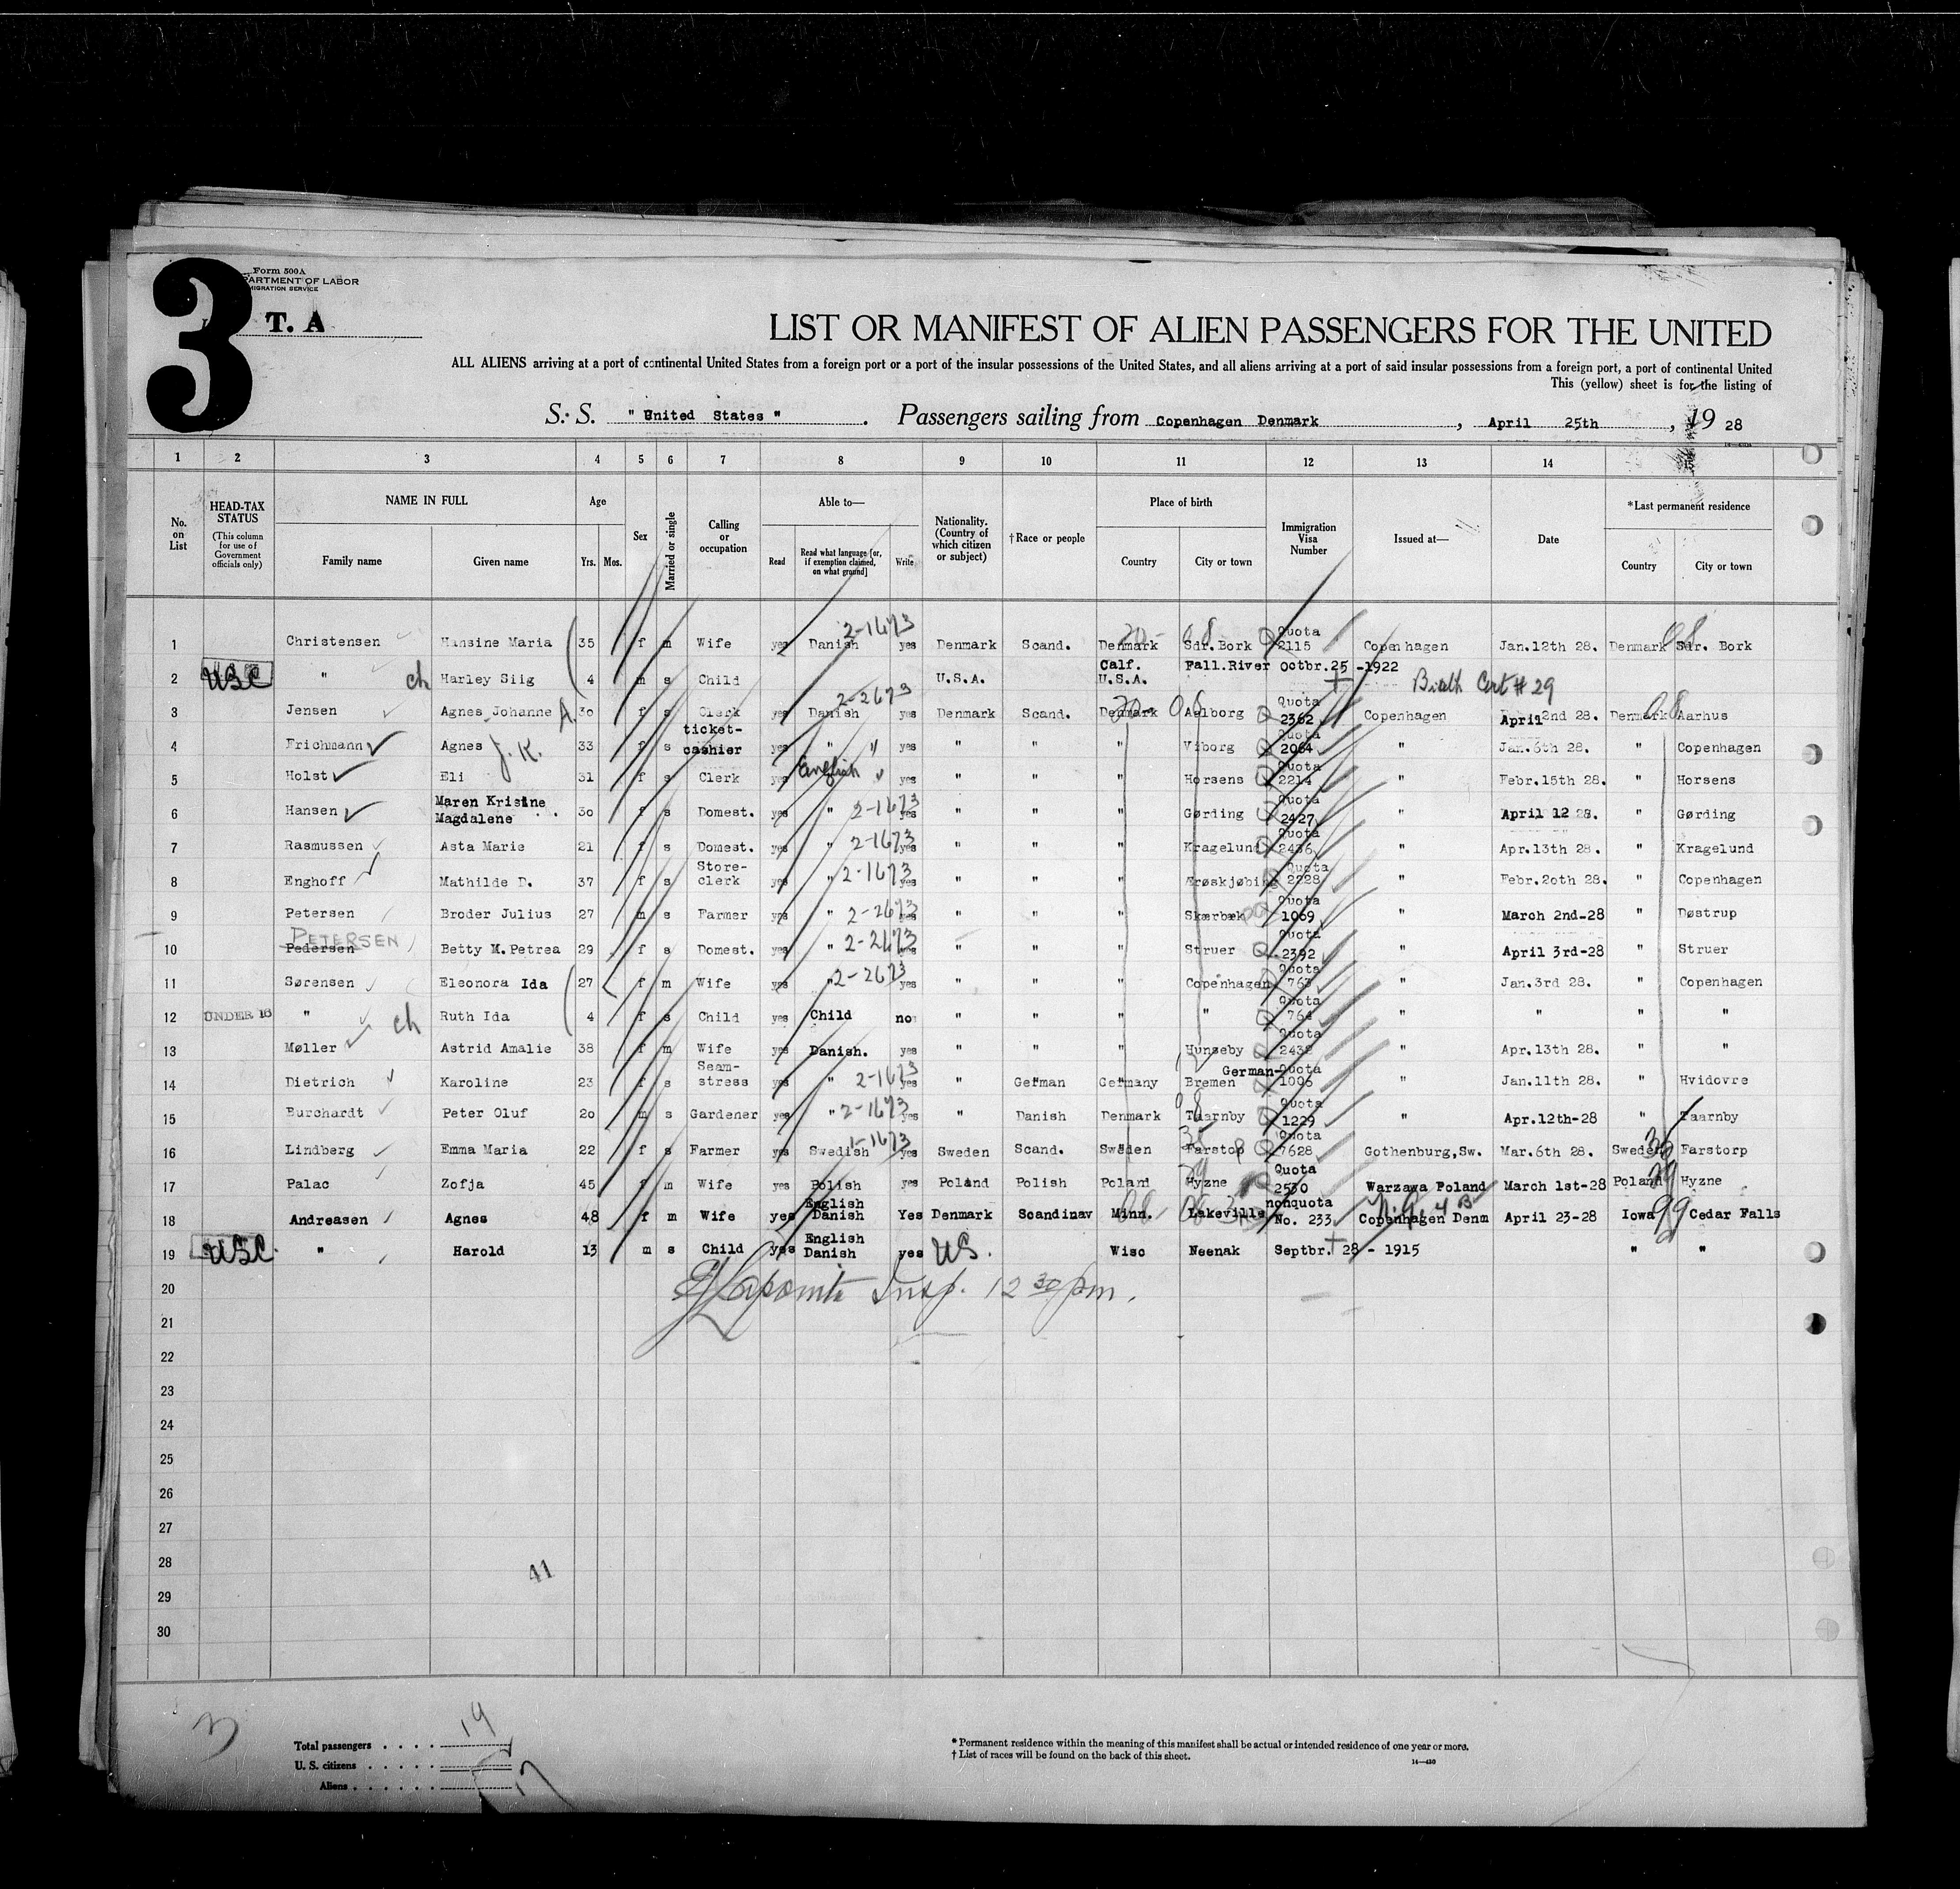 3
Form 500A
PARTMENT OF LABOR
MIGRATION SERVICE
T. A
LIST OR MANIFEST OF ALIEN PASSENGERS FOR THE UNITED
ALL ALIENS arriving at a port of continental United States from a foreign port or a port of the insular possessions of the United States, and all aliens arriving at a port of said insular possessions from a foreign port, a port of continental United
This (yellow) sheet is for the listing of
S. S. "United States". Passengers sailing from Copenhagen Denmark, April 25th, 19 28
1 2 3 4 5 6 7 8 9 10 11 12 13 14
No. on List
HEAD-TAX STATUS (This column for use of Government officials only)
NAME IN FULL Family name Given name
Age Yrs. Mos.
Sex
Married or single
Calling or occupation
Able to— Read Read what language [or, if exemption claimed, on what ground] Write
Nationality. (Country of which citizen or subject)
†Race or people
Place of birth Country City or town
Immigration Visa Number
Issued at—
Date
*Last permanent residence Country City or town
1 Christensen Hansine Maria 35 f m Wife yes Danish 2-1673 yes Denmark Scand. Denmark Sdr. Bork Quota 2115 Copenhagen Jan.12th 28. Denmark Sdr. Bork
2 USC " ch Harley Siig 4 m s Child U.S.A. Calf. U.S.A. Fall.River Octbr.25-1922 Birth Cert # 29
3 Jensen Agnes Johanne A. 30 f s Clerk yes Danish 2-2673 yes Denmark Scand. Denmark Aalborg Quota 2362 Copenhagen April 2nd 28. Denmark Aarhus
4 Frichmann Agnes J. K. 33 f s ticket-cashier yes " " yes " " " Viborg Quota 2064 " Jan.6th 28. " Copenhagen
5 Holst Eli 31 f s Clerk yes English yes " " " Horsens Quota 2214 " Febr.15th 28. " Horsens
6 Hansen Maren Kristine Magdalene 30 f s Domest. yes " 2-1673 yes " " " Gørding Quota 2427 " April 12 28. " Gørding
7 Rasmussen Asta Marie 21 f s Domest. yes " 2-1673 yes " " " Kragelund Quota 2436 " Apr.13th 28. " Kragelund
8 Enghoff Mathilde D. 37 f s Store-clerk yes " 2-1673 yes " " " Ærøskjøbing Quota 2228 " Febr.20th 28. " Copenhagen
9 Petersen Broder Julius 27 m s Farmer yes " 2-2673 yes " " " Skærbæk Quota 1069 " March 2nd-28 " Døstrup
10 PETERSEN Pedersen Betty M. Petrea 29 f s Domest. yes " 2-2673 yes " " " Struer Quota 2392 " April 3rd-28 " Struer
11 Sørensen Eleonora Ida 27 f m Wife yes " 2-2673 yes " " " Copenhagen Quota 763 " Jan.3rd 28. " Copenhagen
12 UNDER 16 " ch Ruth Ida 4 f s Child yes Child no " " " " Quota 764 " " " "
13 Møller Astrid Amalie 38 f m Wife yes Danish. yes " " " Hunseby Quota 2438 " Apr.13th 28. " "
14 Dietrich Karoline 23 f s Seam-stress yes " 2-1673 yes " German Germany Bremen German-Quota 1006 " Jan.11th 28. " Hvidovre
15 Burchardt Peter Oluf 20 m s Gardener yes " 2-1673 yes " Danish Denmark Taarnby Quota 1229 " Apr.12th-28 " Taarnby
16 Lindberg Emma Maria 22 f s Farmer yes Swedish 1-1673 yes Sweden Scand. Sweden Farstop Quota 7628 Gothenburg,Sw. Mar.6th 28. Sweden Farstorp
17 Palac Zofja 45 f m Wife yes Polish yes Poland Polish Poland Hyzne Quota 2530 Warzawa Poland March 1st-28 Poland Hyzne
18 Andreasen Agnes 48 f m Wife yes English Danish Yes Denmark Scandinav Minn. Lakeville nonquota No. 233 Copenhagen Denm April 23-28 Iowa Cedar Falls
19 USC " Harold 13 m s Child yes English Danish yes US. Wisc Neenak Septbr. 28 - 1915 " "
20 Insp. 12 30 pm.
21
22
23
24
25
26
27
28
41
29
30
3
Total passengers 19
U. S. citizens
Aliens 17
*Permanent residence within the meaning of this manifest shall be actual or intended residence of one year or more.
†List of races will be found on the back of this sheet.
14—430